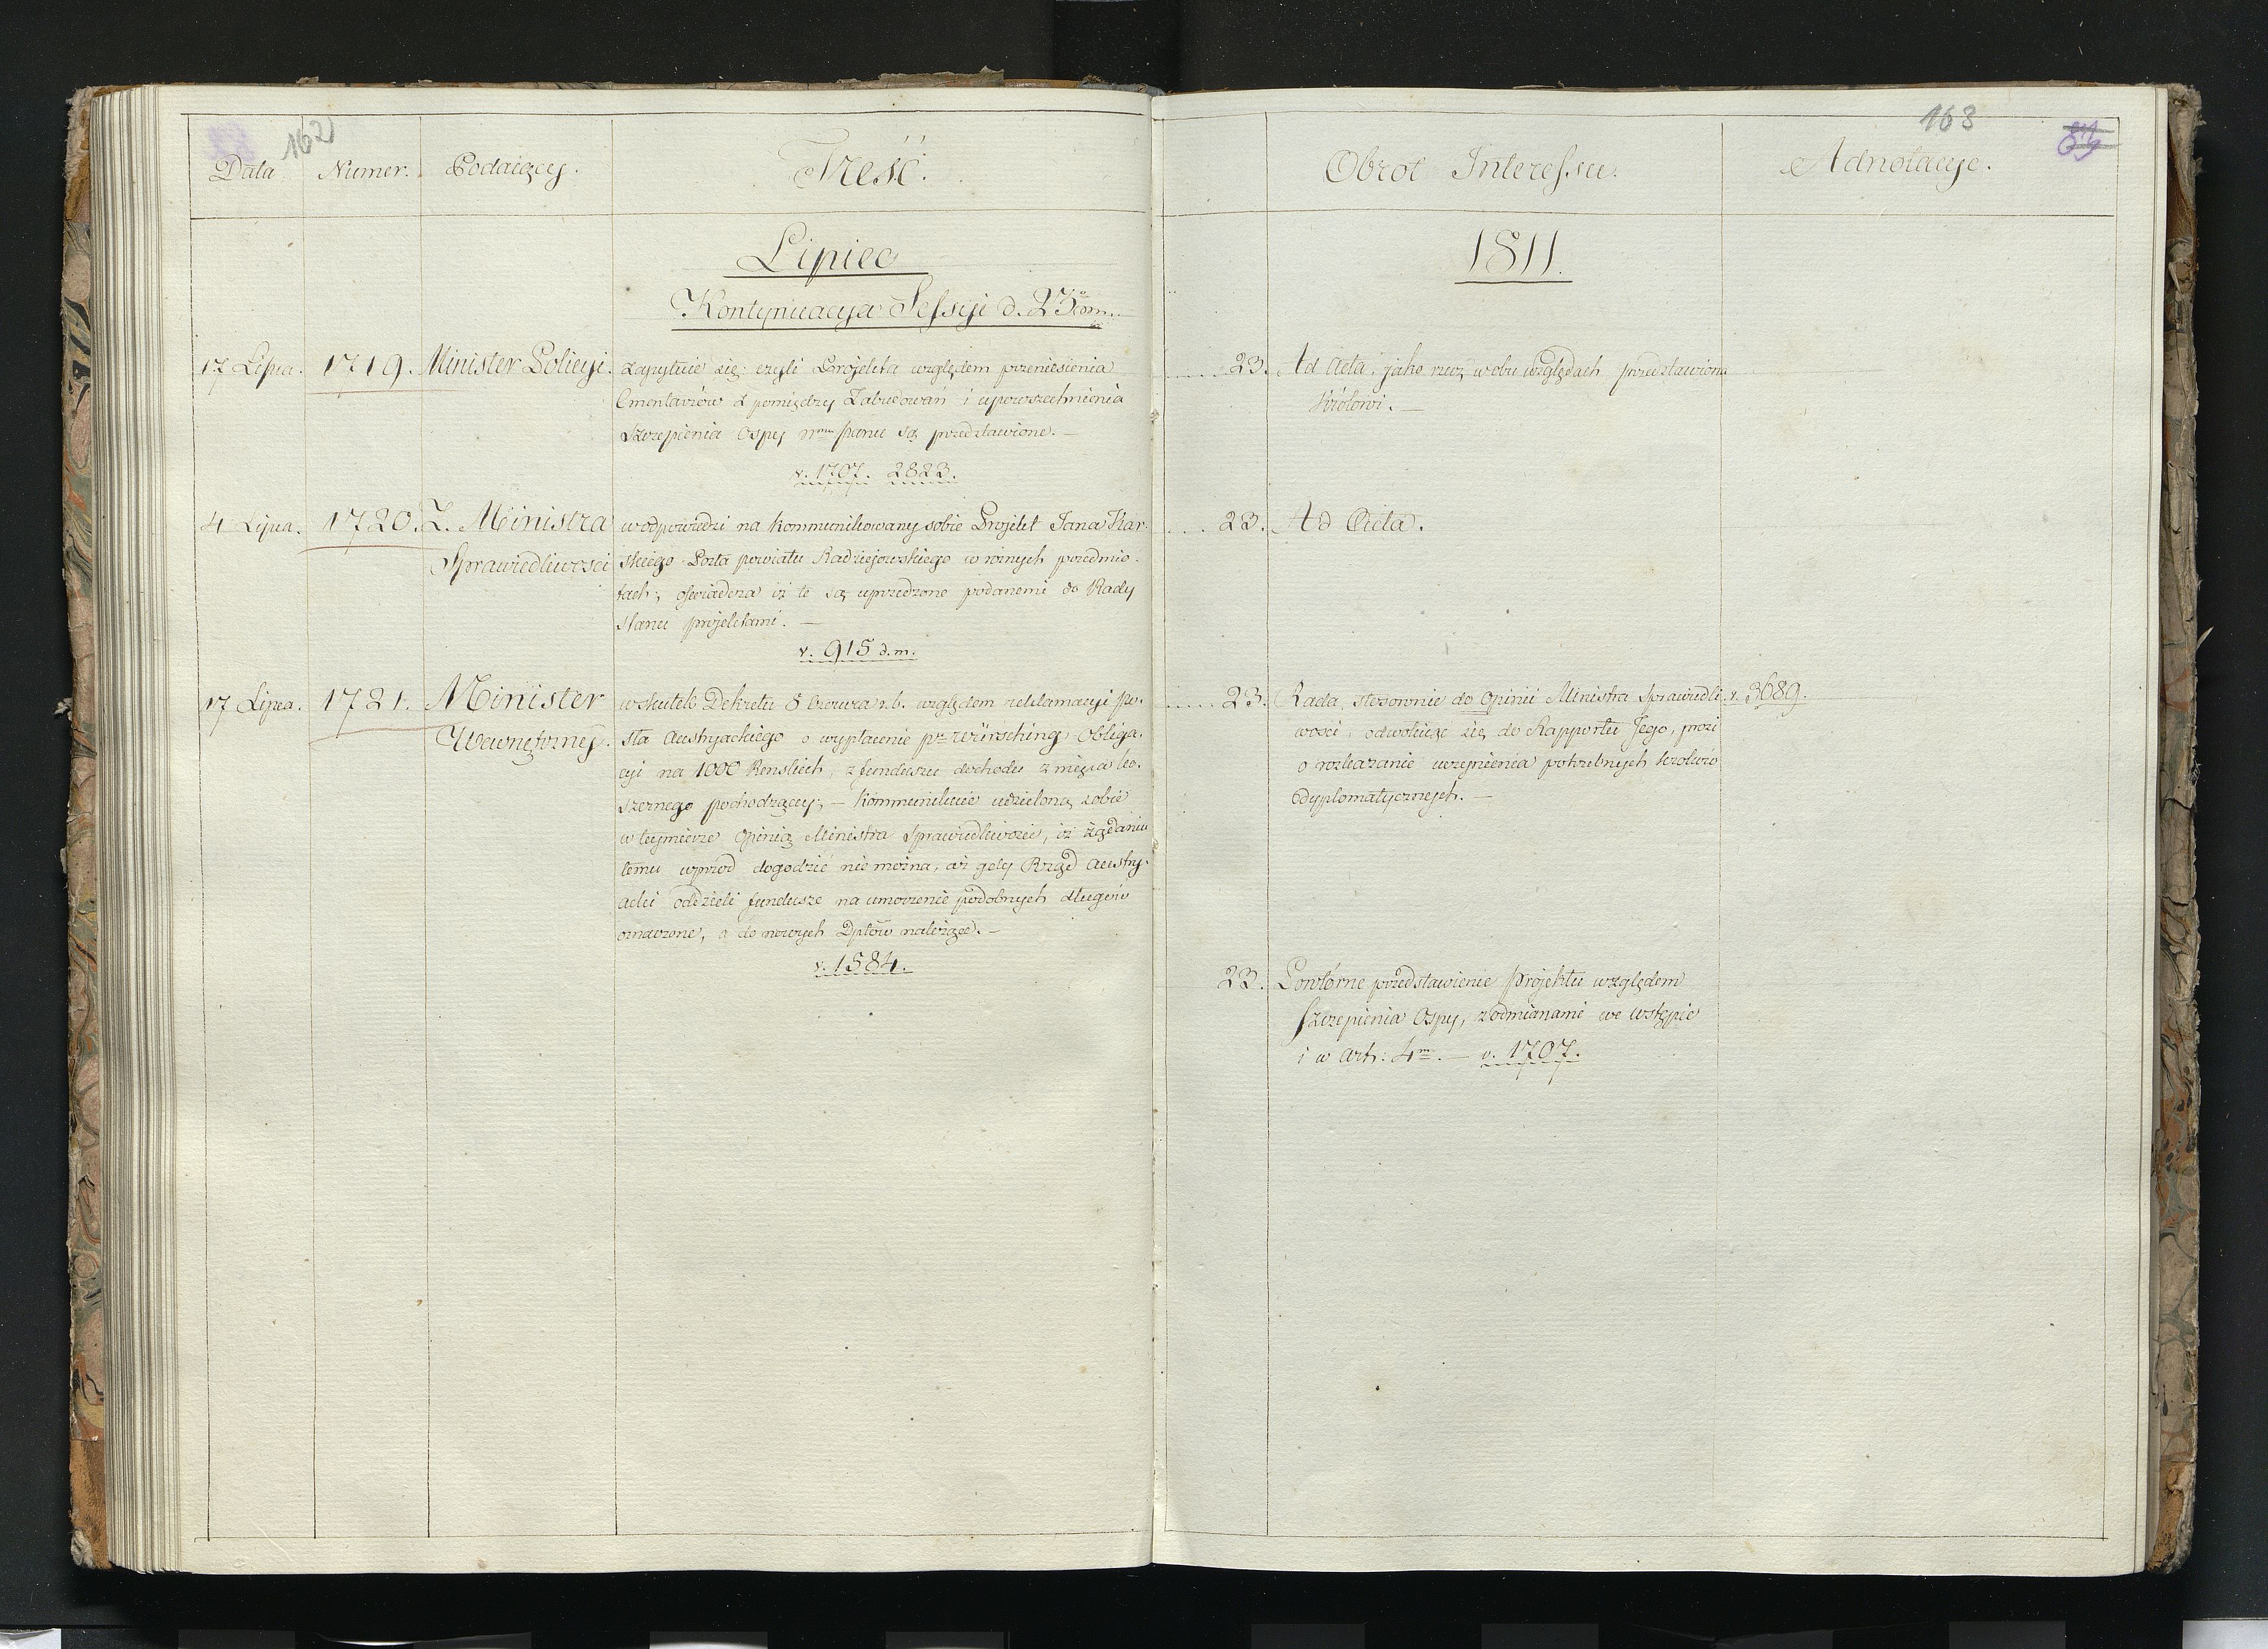 162
Data. Numer. Podaiący. Treść.
Lipiec
Kontynuacya Sessyi d. 23
17 Lipca. 1719. Minister Policyi. zapytuie się: czyli Projekta względem przeniesienia
Cmentarzów z pomiędzy Zabudowań i upowszechnienia
szczepienia Ospy panu są przedstawione. —
v. 1707. 2823.
4 Lipca. 1720. Z. Ministra w odpowiedzi na kommunikowany sobie Projekt Jana Kar-
Sprawiedliwosci skiego Posła powiatu Radziejowskiego w róznych przedmio-
tach; oświadcza iż te są uprzedzone podanemi do Rady
stanu projektami. —
v. 915 d.m.
17 Lipca. 1721. Minister wskutek Dekretu 8 Czerwca r.b. względem reklamacyi po-
Wewnętrzney. sła Austryackiego o wypłacenie Würsching Obliga-
cyi na 1000 Renskich, z funduszu dochodu z mięsa ko-
szernego pochodzącey; — Kommunikuie udzieloną sobie
w teymierze Opinią Ministra Sprawiedliwości, iż żądaniu
temu wprzod dogodzić nie można, aż gdy Rząd Austry-
acki oddzieli fundusze na umorzenie podobnych długów
oznaczone, a do nowych Dptów należące. —
v. 1584.
163
83
Obrot Interessu. Adnotacye.
1811.
23. Ad Acta, jako rzecz w obu względach przedstawiona
Królowi. —
23. Ad Acta.
23. Rada, stosownie do Opinii Ministra Sprawiedli- v. 3689.
wości, odwołuiąc się do Rapportu Jego, prosi
o rozkazanie uczynienia potrzebnych kroków
dyplomatycznych. —
23. Powtórne przedstawienie Projektu względem
szczepienia Ospy, z odmianami we wstępie
i w Art: 4m. — v. 1707.